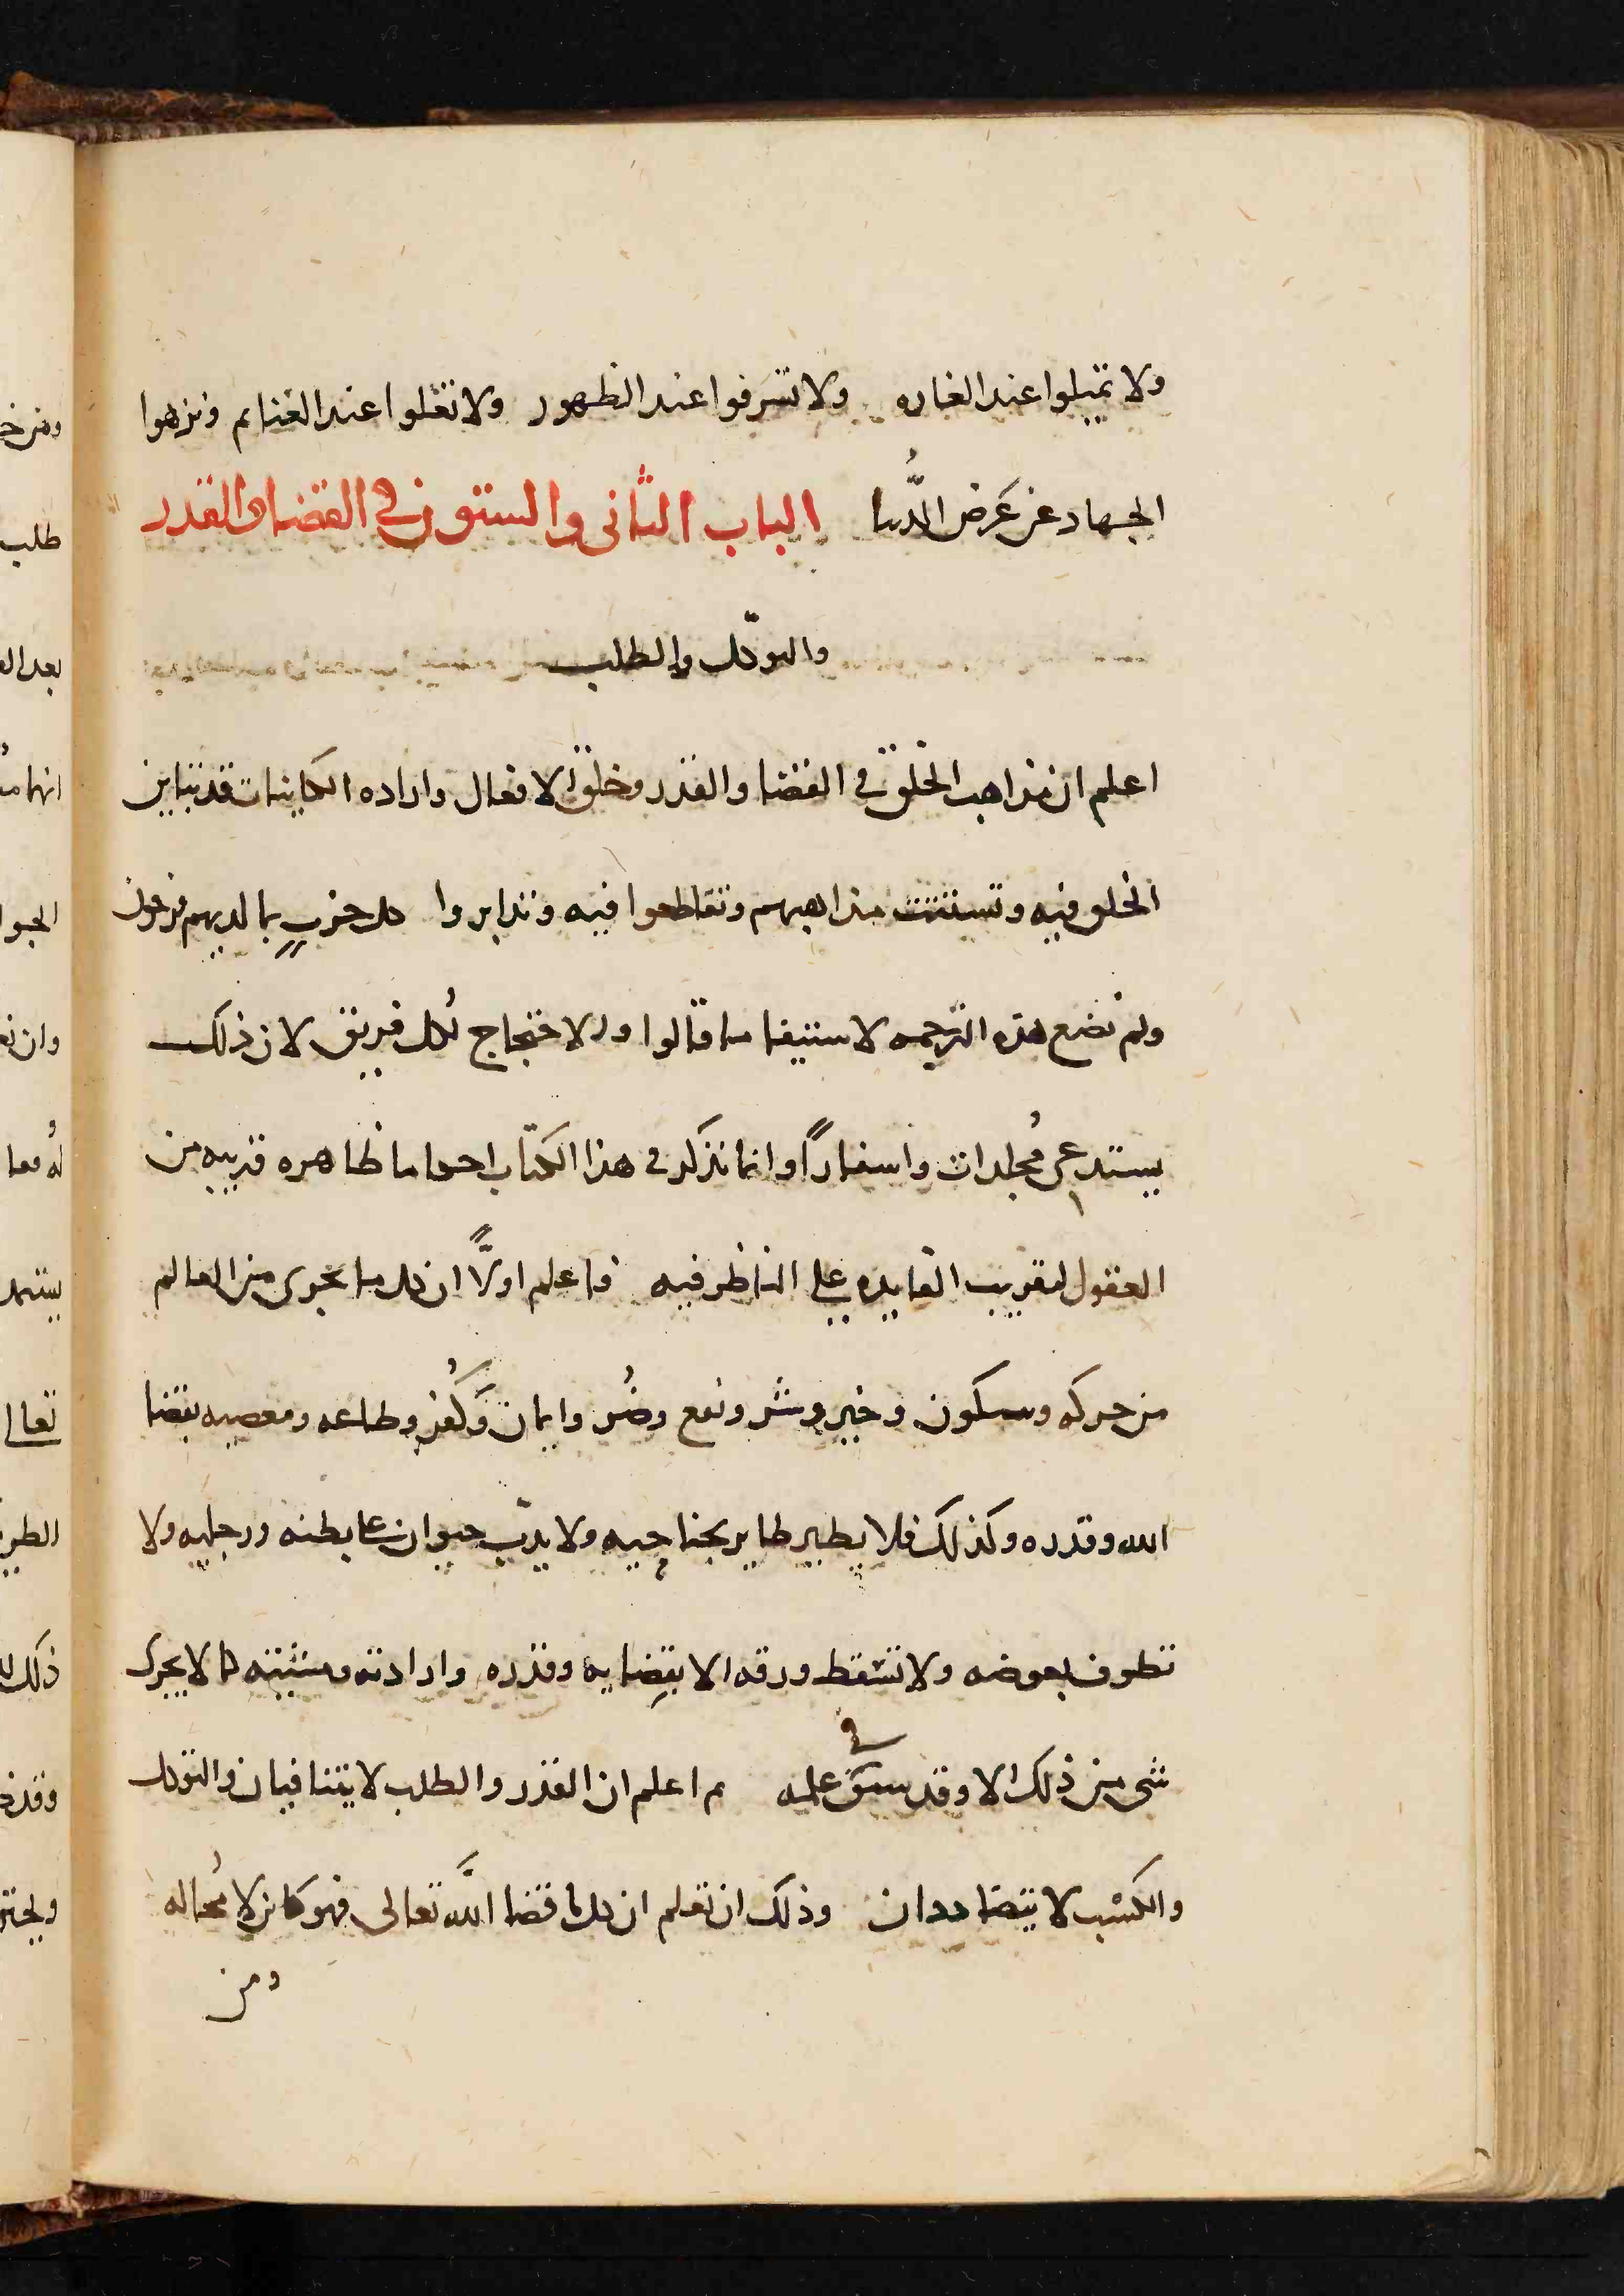 ولا تميلوا عند الغاره ولا تسرفوا عند الظهور ولا تغلوا عند الغنايم ونزهوا
الجهاد عن عَرَض الدُّنيا الباب الثانى والستون فى القضا والقدر
والتوكّل والطلب
اعلم ان مذاهب الخلق فى القضا والقدر وخلق الافعال واراده الكاينات قد تباين
الخلق فيه وتشتتت مذاهبهم وتقاطعوا فيه وتدابروا كل حزبٍ بما لديهم فرحون
ولم نضع هذه الترجمه لاستيفا ما قالوا ولا لاحتجاج لكل فريق لان ذلك
يستدعى مُجلدات واسفاراً وانما نذكر فى هذا الكتاب احكاما ظاهره قريبه من
العقول لتقريب الفايده على الناظر فيه فاعلم اولاً ان كل ما يجرى من العالم
من حركه وسكون وخير وشر ونفع وضُر وايمان وَكُفر وطاعه ومعصيه بقضا
الله وقدره وكذلك فلا يطير طاير بجناحيه ولا يدبّ حيوان على بطنه ورجليه ولا
تطوف بعوضه ولا تسقط ورقه الا بقضايه وقدره وارادته ومشيته كما لا يجرى
شى من ذلك الا وقد سبق فى علمه ثم اعلم ان القدر والطلب لا يتنافيان والتوكل
والكسب لا يتضاددان وذلك ان تعلم ان كل ما قضا اللَّه تعالى فهو كاين لا مُحاله
ومن